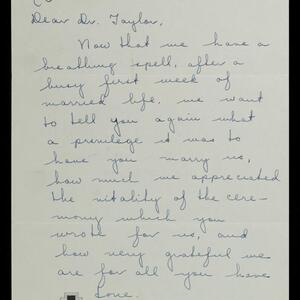 Dear Dr. Taylor,
Now that we have a
breathing spell, after a
busy first week of
married life, we want
to tell you again what
a privilege it was to
have you marry us,
how much we appreciated
the vitality of the cere-
mony which you
wrote for us, and
how very grateful we
are for all you have
done.